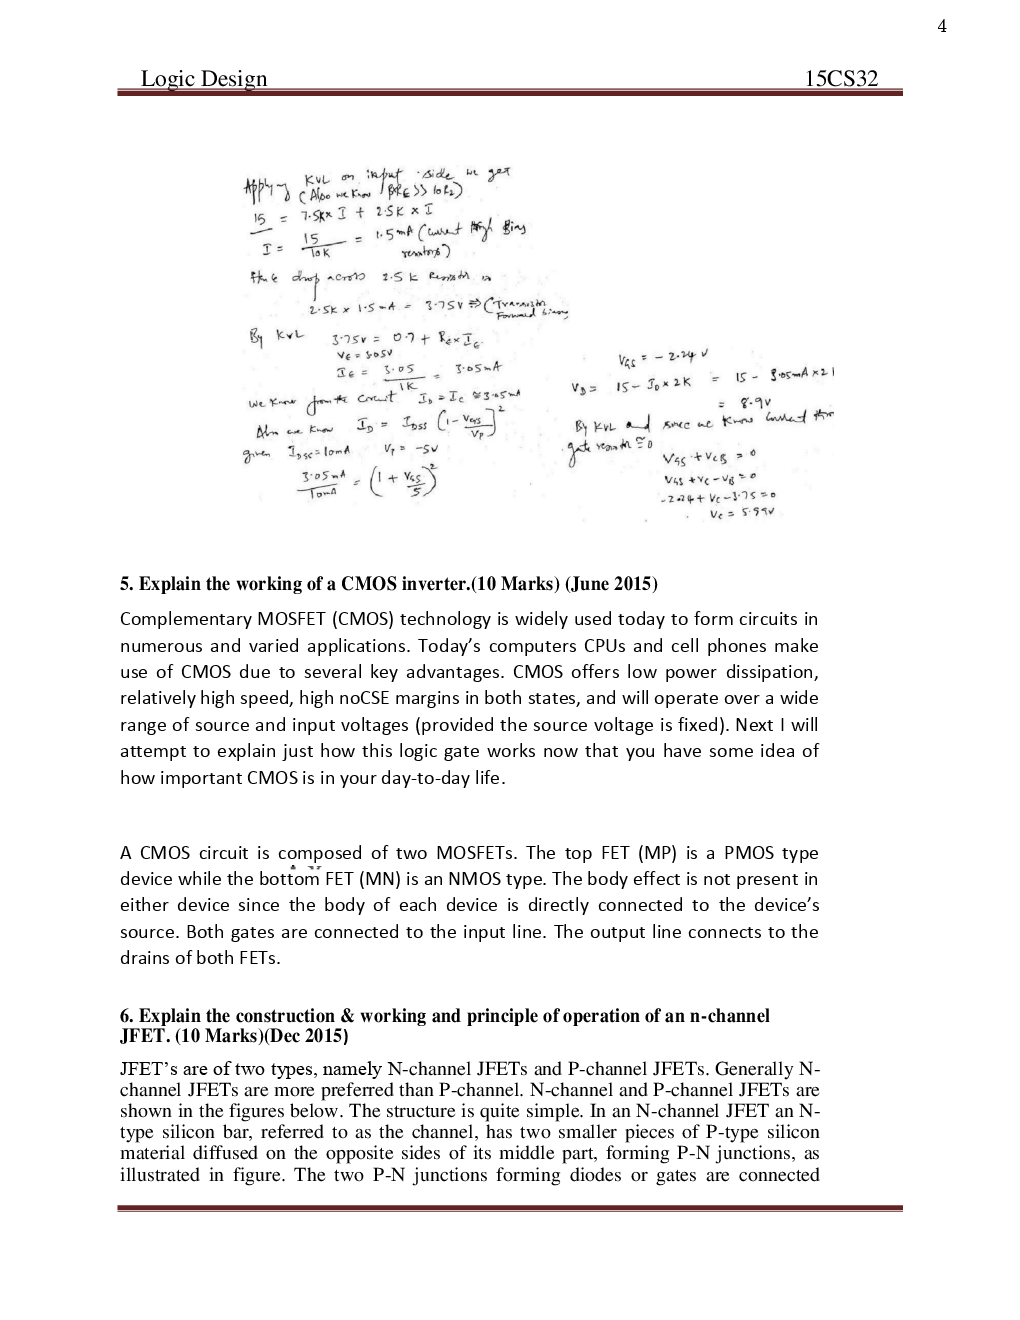 4
Logic Design 15CS32
Apply KVL on input side we get
(Also we know βRE >> 10R2)
15 = 7.5K x I + 2.5K x I
I = 15/10K = 1.5mA (Current through Bias
resistors)
drop across 2.5 K Resistor is
2.5K x 1.5mA = 3.75V ⇒ (Transistor
Forward biasing
By KVL 3.75V = 0.7 + RE x IE
VE = 3.05V
IE = 3.05/1K = 3.05mA
We know from the circuit ID = IC ≅ 3.05mA
Also we know ID = IDSS (1 - VGS/VP)²
given IDSS = 10mA VP = -5V
3.05mA/10mA = (1 + VGS/5)²
VGS = -2.24 V
VD = 15 - ID x 2K = 15 - 3.05mA x 2
= 8.9V
By KVL and since we know current thro
gate resistor ≅ 0
VGS + VCB = 0
VGS + VC - VB = 0
-2.24 + VC - 3.75 = 0
VC = 5.99V
5. Explain the working of a CMOS inverter.(10 Marks) (June 2015)
Complementary MOSFET (CMOS) technology is widely used today to form circuits in
numerous and varied applications. Today’s computers CPUs and cell phones make
use of CMOS due to several key advantages. CMOS offers low power dissipation,
relatively high speed, high noCSE margins in both states, and will operate over a wide
range of source and input voltages (provided the source voltage is fixed). Next I will
attempt to explain just how this logic gate works now that you have some idea of
how important CMOS is in your day-to-day life.
A CMOS circuit is composed of two MOSFETs. The top FET (MP) is a PMOS type
device while the bottom FET (MN) is an NMOS type. The body effect is not present in
either device since the body of each device is directly connected to the device’s
source. Both gates are connected to the input line. The output line connects to the
drains of both FETs.
6. Explain the construction & working and principle of operation of an n-channel
JFET. (10 Marks)(Dec 2015)
JFET’s are of two types, namely N-channel JFETs and P-channel JFETs. Generally N-
channel JFETs are more preferred than P-channel. N-channel and P-channel JFETs are
shown in the figures below. The structure is quite simple. In an N-channel JFET an N-
type silicon bar, referred to as the channel, has two smaller pieces of P-type silicon
material diffused on the opposite sides of its middle part, forming P-N junctions, as
illustrated in figure. The two P-N junctions forming diodes or gates are connected